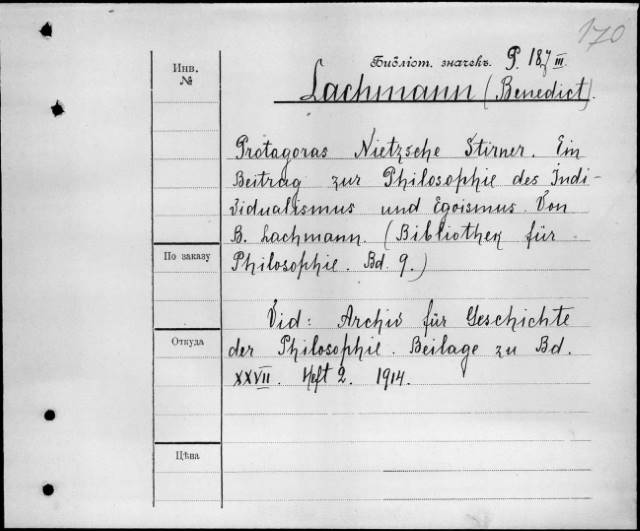 170
Библіот. значекъ. P. 18 7/III
Инв.
№
Lachmann (Benedict).
Protagoras Nietzsche Stirner. Ein
Beitrag zur Philosophie des Indi-
vidualismus und Egoismus. Von
B. Lachmann. (Bibliothek für
По заказу
Philosophie. Bd. 9.)
Vid: Archiv für Geschichte
Откуда
der Philosophie. Beilage zu Bd.
XXVII. Heft 2. 1914.
Цѣна